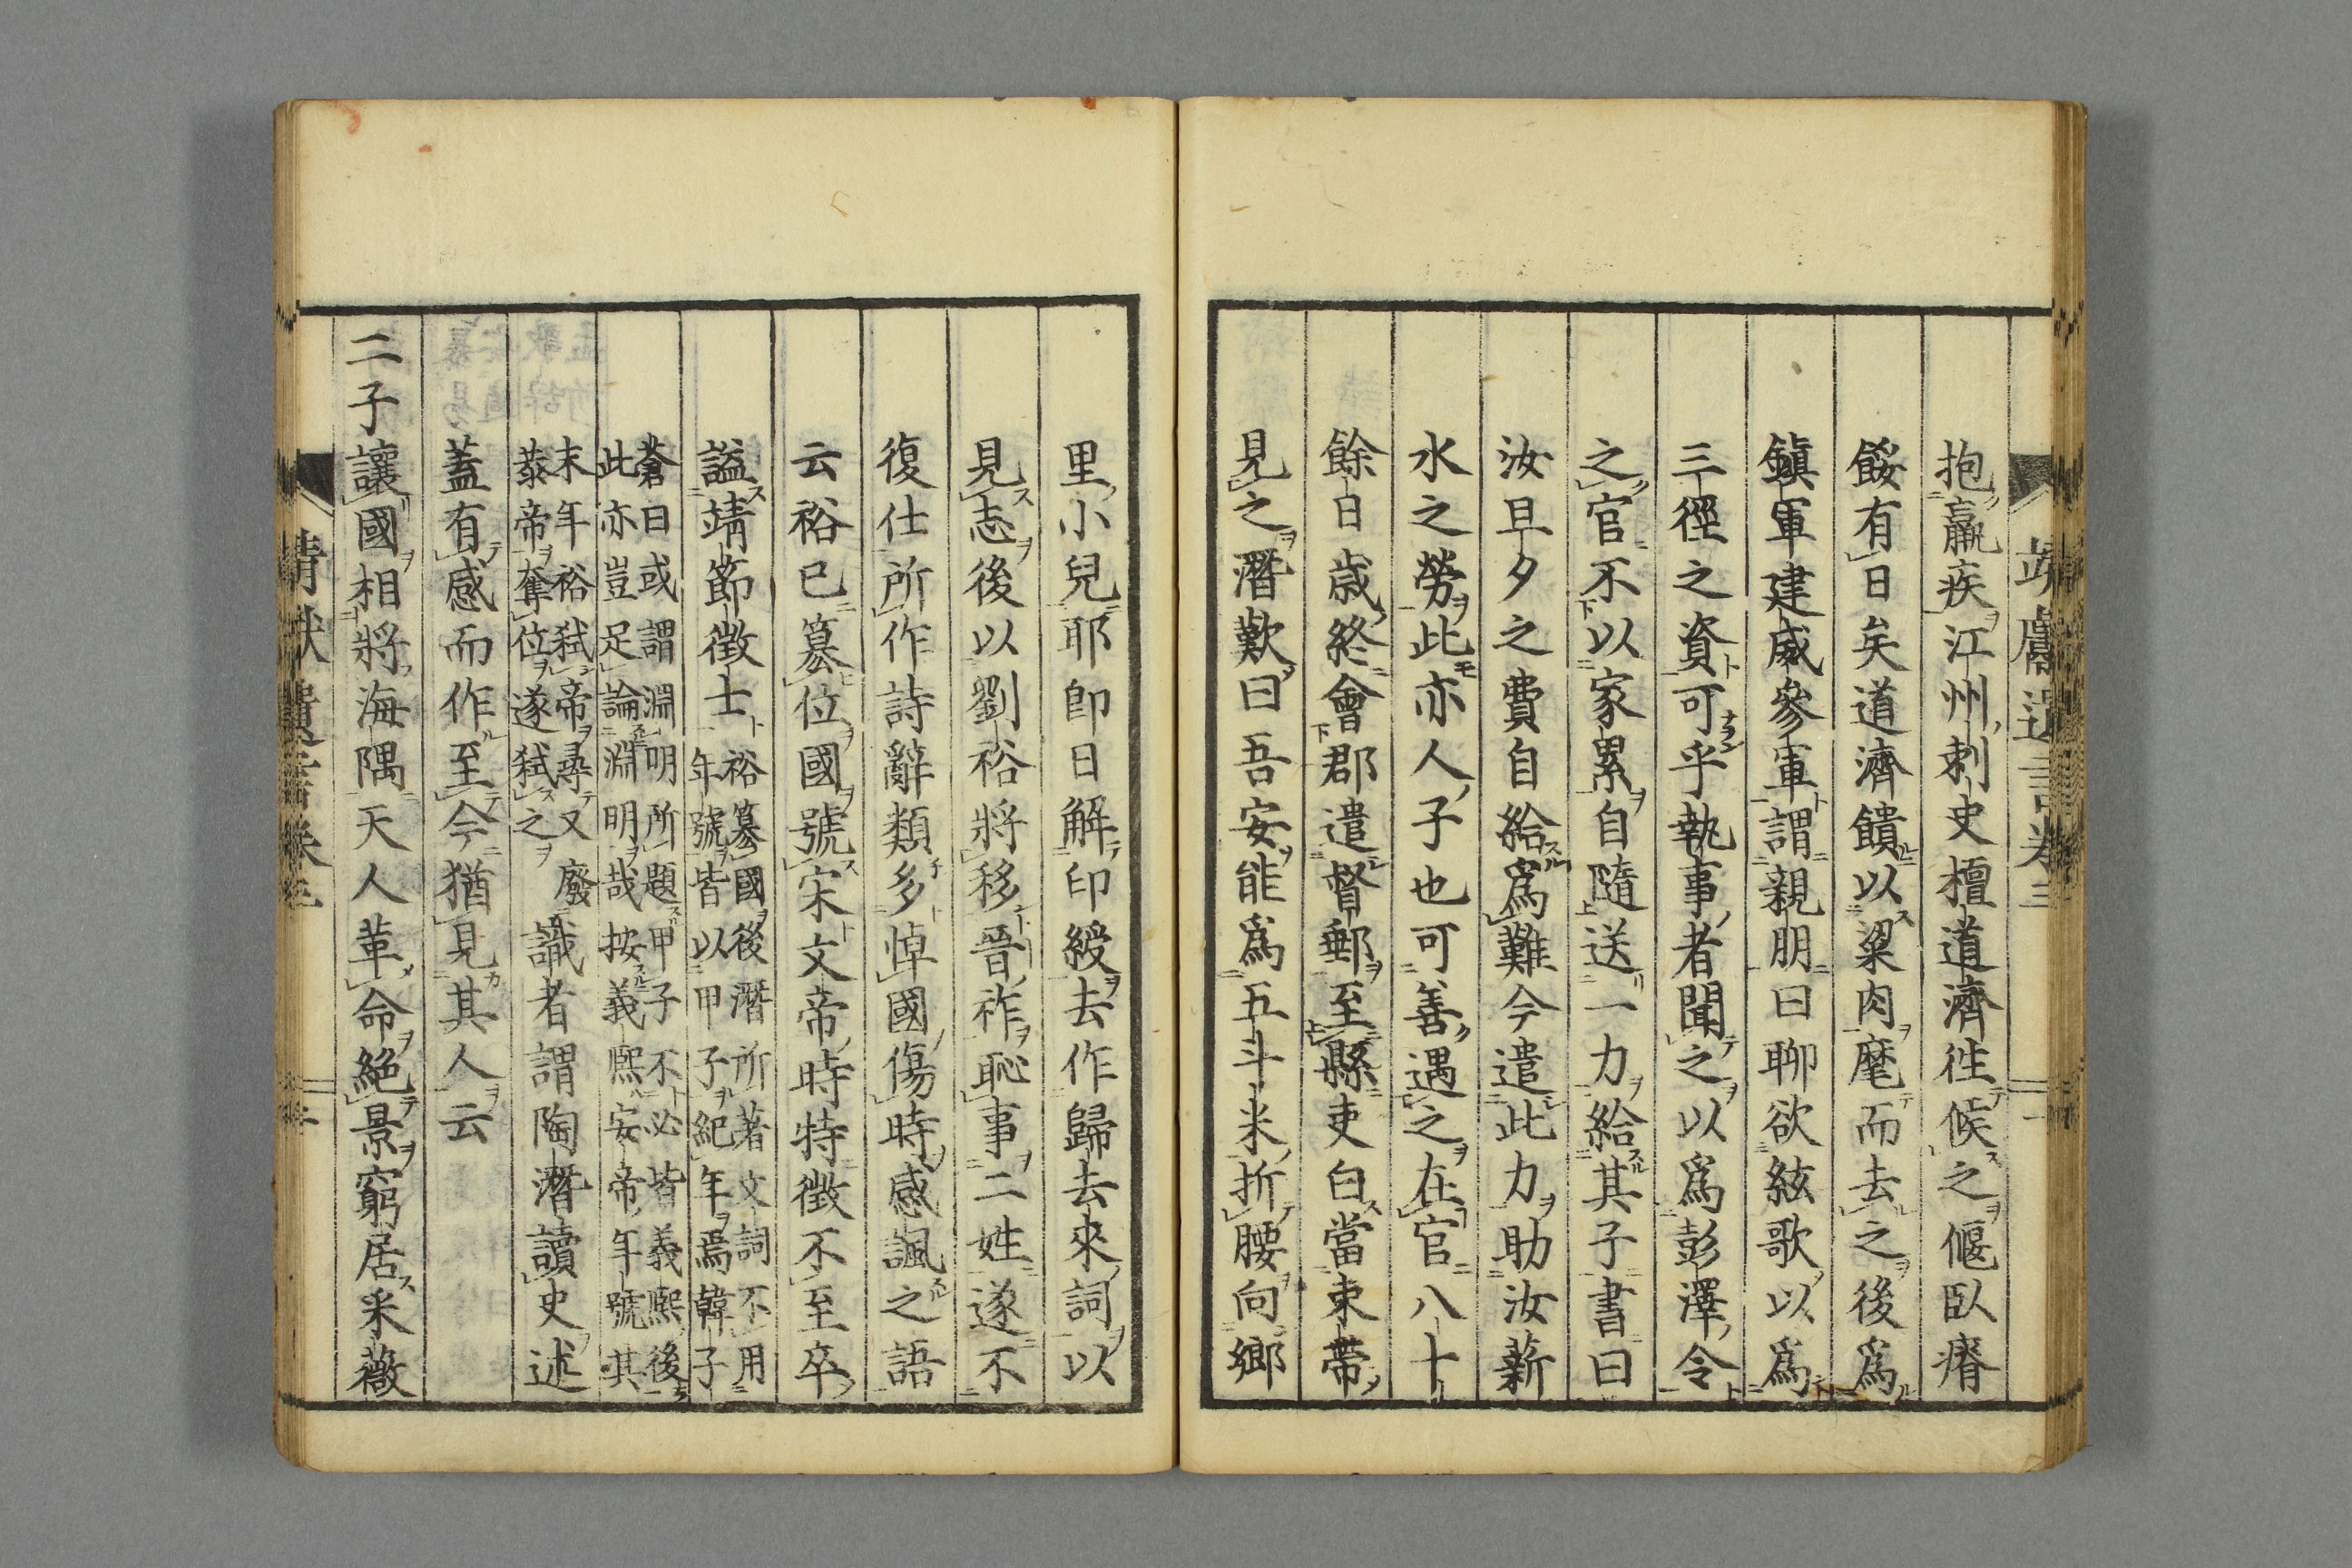 靖獻遺言卷三
抱羸疾江州刺史檀道濟往候之偃臥瘠
餒有日矣道濟饋以粱肉麾而去之後爲
鎭軍建威參軍謂親朋曰聊欲絃歌以爲
三徑之資可乎執事者聞之以爲彭澤令
之官不以家累自隨送一力給其子書曰
汝旦夕之費自給爲難今遣此力助汝薪
水之勞此亦人子也可善遇之在官八十
餘日歲終會郡遣督郵至縣吏白當束帶
見之潛歎曰吾安能爲五斗米折腰向鄉
里小兒耶即日解印綬去作歸去來詞以
見志後以劉裕將移晉祚恥事二姓遂不
復仕所作詩辭類多悼國傷時感諷之語
云裕已簒位國號宋文帝時特徵不至卒
謚靖節徵士裕簒國後潛所著文詞不用
年號皆以甲子紀年焉韓子
蒼曰或謂淵明所題甲子不必皆義熙後
此亦豈足論淵明哉按義熙安帝年號其
末年裕弒帝尋又廢
恭帝奪位遂弒之識者謂陶潛讀史述
蓋有感而作至今猶見其人云
二子讓國相將海隅天人革命絕景窮居采薇
靖獻遺言卷三